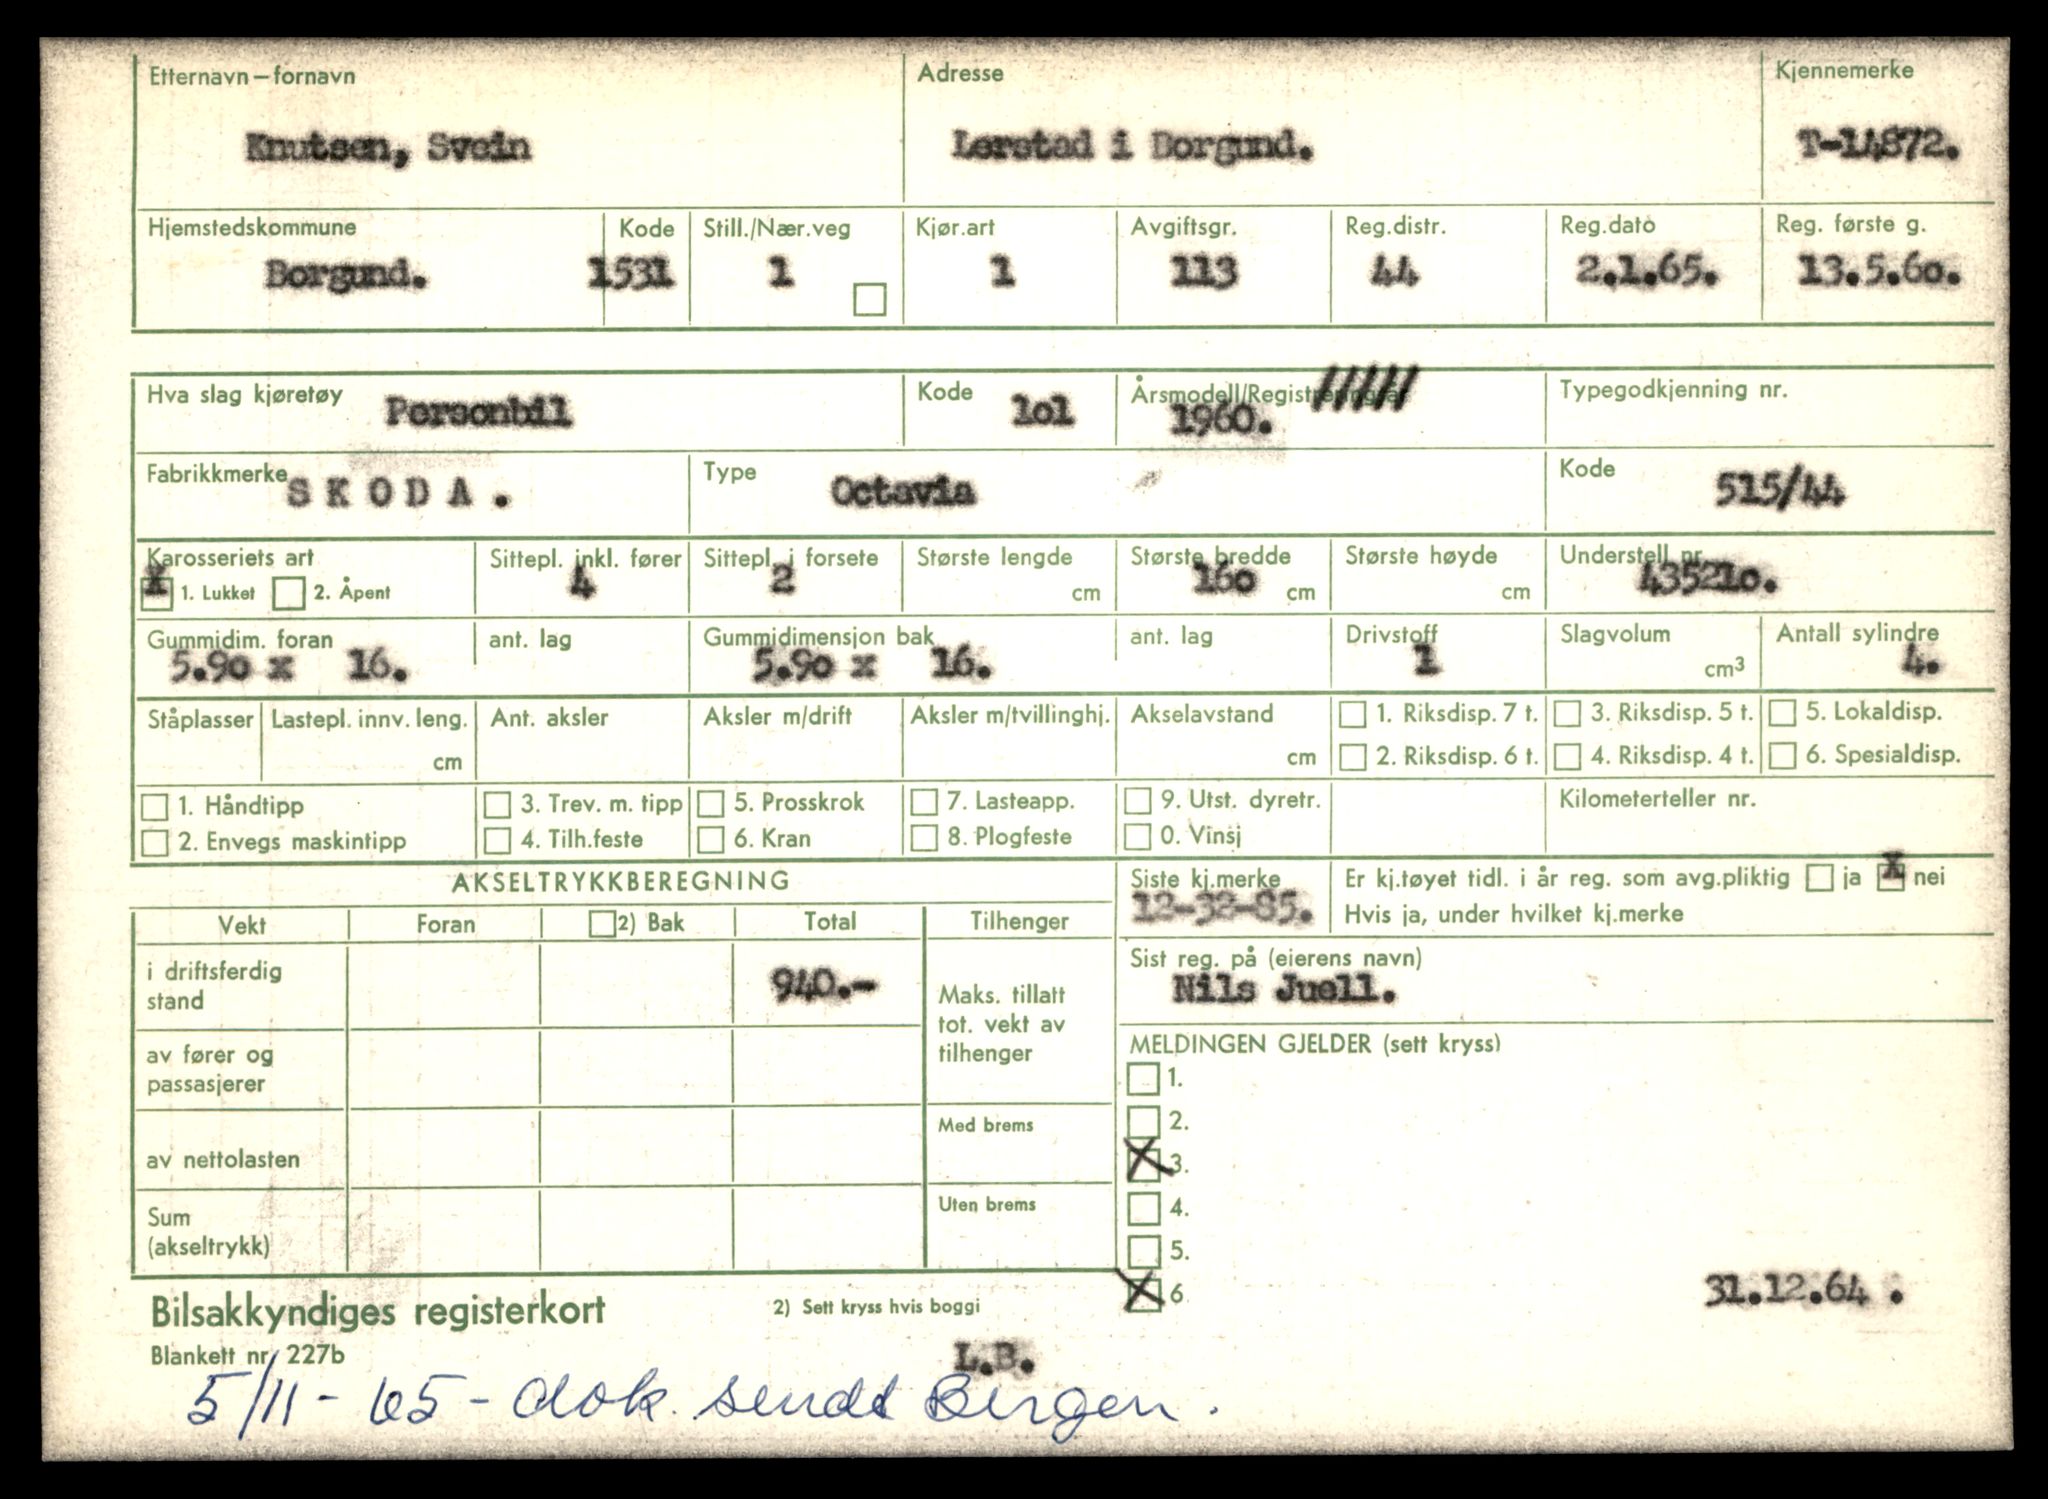 Etternavn–fornavn Adresse Kjennemerke
Knutsen, Svein Lerstad i Borgund. T-14872.
Hjemstedskommune Kode Still./Nær.veg Kjør.art Avgiftsgr. Reg.distr. Reg.dato Reg. første g.
Borgund. 1531 1 1 113 44 2.1.65. 13.5.6o.
Hva slag kjøretøy Personbil Kode 1o1 Årsmodell/Registreringsår ///// Typegodkjenning nr.
1960.
Fabrikkmerke SKODA. Type Octavia Kode 515/44
Karosseriets art Sittepl. inkl. fører Sittepl. i forsete Største lengde Største bredde Største høyde Understell nr.
X 1. Lukket 2. Åpent 4 2 cm 16o cm cm 43521o.
Gummidim. foran ant. lag Gummidimensjon bak ant. lag Drivstoff Slagvolum Antall sylindre
5.9o x 16. 5.9o x 16. 1 cm³ 4.
Ståplasser Lastepl. innv. leng. Ant. aksler Aksler m/drift Aksler m/tvillinghj. Akselavstand 1. Riksdisp. 7 t. 3. Riksdisp. 5 t. 5. Lokaldisp.
cm cm 2. Riksdisp. 6 t. 4. Riksdisp. 4 t. 6. Spesialdisp.
1. Håndtipp 3. Trev. m. tipp 5. Prosskrok 7. Lasteapp. 9. Utst. dyretr. Kilometerteller nr.
2. Envegs maskintipp 4. Tilh.feste 6. Kran 8. Plogfeste 0. Vinsj
AKSELTRYKKBEREGNING Siste kj.merke Er kj.tøyet tidl. i år reg. som avg.pliktig ja X nei
12-32-85. Hvis ja, under hvilket kj.merke
Vekt Foran 2) Bak Total Tilhenger
Sist reg. på (eierens navn)
Nils Juell.
i driftsferdig stand 940.-
Maks. tillatt tot. vekt av tilhenger
MELDINGEN GJELDER (sett kryss)
av fører og passasjerer 1.
Med brems 2.
av nettolasten X 3.
Uten brems 4.
Sum (akseltrykk) 5.
X 6 31.12.64 .
Bilsakkyndiges registerkort 2) Sett kryss hvis boggi
Blankett nr. 227b L.B.
5/11-65 - dok. sendt Bergen.